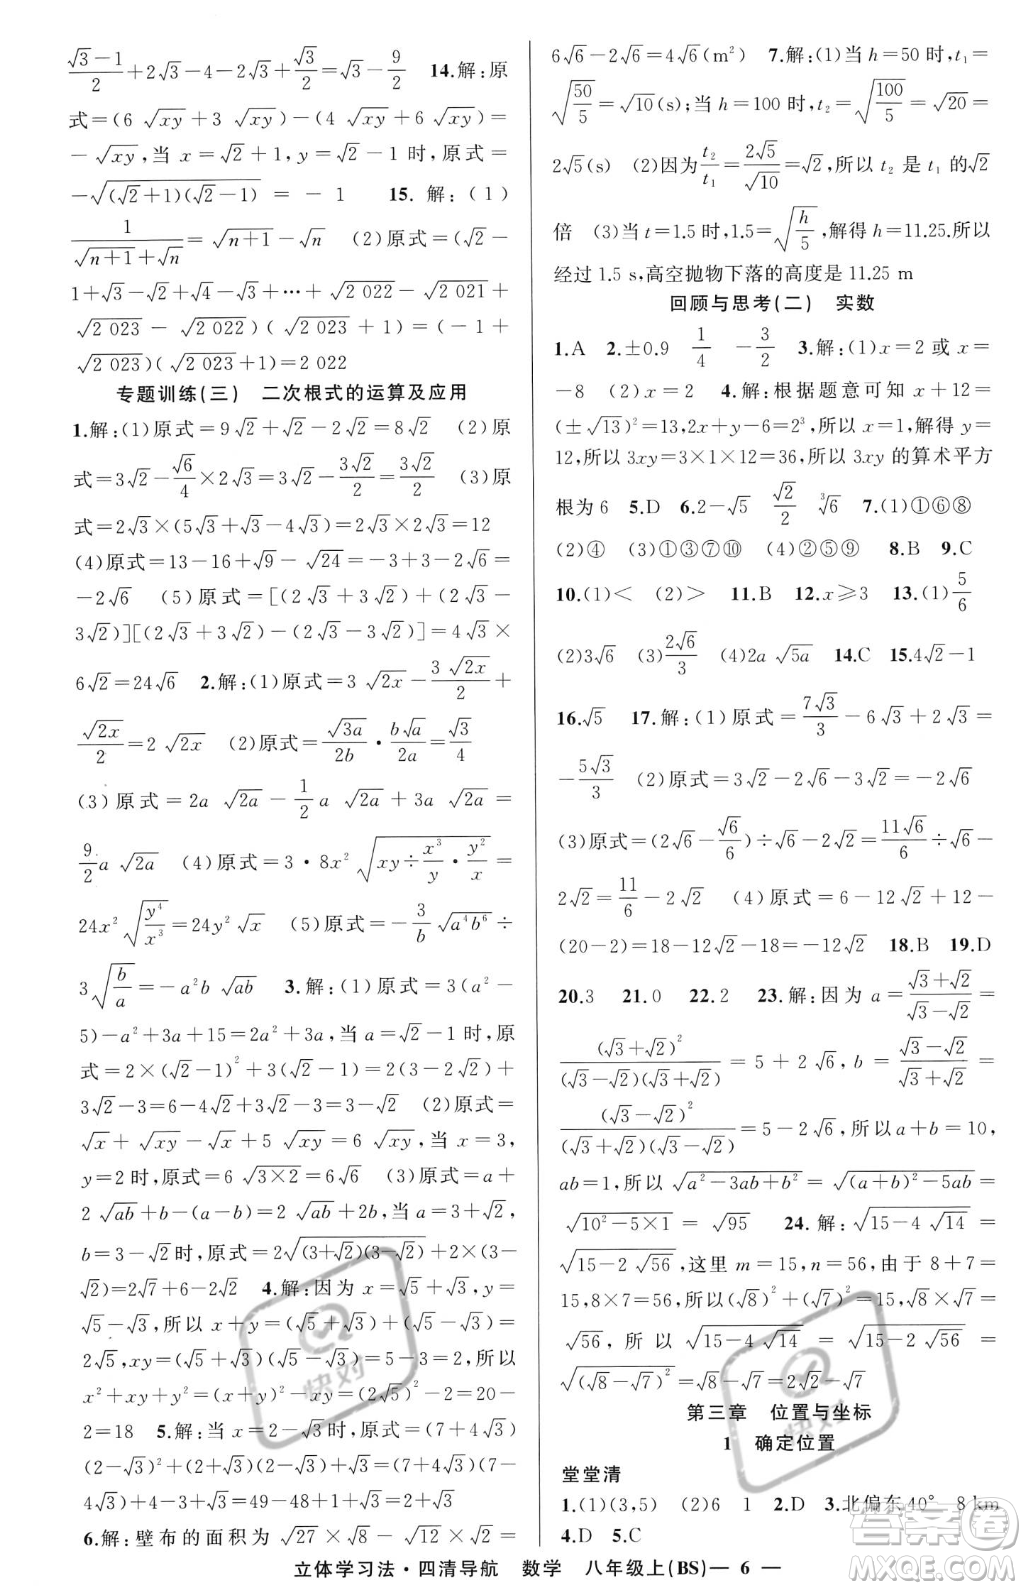 (√3−1)/2+2√3−4−2√3+√3/2=√3−9/2 14.解:原
式=(6√xy+3√xy)−(4√xy+6√xy)=
−√xy,当 x=√2+1,y=√2−1 时,原式=
−√((√2+1)(√2−1))=−1 15.解:(1)
1/(√(n+1)+√n)=√(n+1)−√n (2)原式=(√2−
1+√3−√2+√4−√3+…+√2 022−√2 021+
√2 023−√2 022)(√2 023+1)=(√2 023−1)
(√2 023+1)=2 022
专题训练(三) 二次根式的运算及应用
1.解:(1)原式=9√2+√2−2√2=8√2 (2)原
式=3√2−√6/4×2√3=3√2−3√2/2=3√2/2 (3)原
式=2√3×(5√3+√3−4√3)=2√3×2√3=12
(4)原式=13−16+√9−√24=−3+3−2√6=
−2√6 (5)原式=[(2√3+3√2)+(2√3−
3√2)][(2√3+3√2)−(2√3−3√2)]=4√3×
6√2=24√6 2.解:(1)原式=3√2x−3√2x/2+
√2x/2=2√2x (2)原式=√3a/2b·b√a/2a=√3/4
(3)原式=2a√2a−1/2a√2a+3a√2a=
9/2a√2a (4)原式=3·8x²√(xy÷x³/y·y²/x)=
24x²√(y⁴/x³)=24y²√x (5)原式=−3/b√(a⁴b⁶)÷
3√(b/a)=−a²b√ab 3.解:(1)原式=3(a²−
5)−a²+3a+15=2a²+3a,当 a=√2−1 时,原
式=2×(√2−1)²+3(√2−1)=2(3−2√2)+
3√2−3=6−4√2+3√2−3=3−√2 (2)原式=
√x+√xy−√x+5√xy=6√xy,当 x=3,
y=2 时,原式=6√(3×2)=6√6 (3)原式=a+
2√ab+b−(a−b)=2√ab+2b,当 a=3+√2,
b=3−√2时,原式=2√((3+√2)(3−√2))+2(3−
√2)=2√7+6−2√2 4.解:因为 x=√5+√3,y=
√5−√3,所以 x+y=(√5+√3)+(√5−√3)=
2√5,xy=(√5+√3)(√5−√3)=5−3=2,所以
x²+xy+y²=(x+y)²−xy=(2√5)²−2=20−
2=18 5.解:当 x=2−√3时,原式=(7+4√3)
(2−√3)²+(2+√3)(2−√3)+√3=(7+4√3)(7−
4√3)+4−3+√3=49−48+1+√3=2+√3
6.解:壁布的面积为√27×√8−√12×√2=
6√6−2√6=4√6(m²) 7.解:(1)当 h=50 时,t₁=
√(50/5)=√10(s);当 h=100 时,t₂=√(100/5)=√20=
2√5(s) (2)因为t₂/t₁=2√5/√10=√2,所以 t₂ 是 t₁ 的√2
倍 (3)当 t=1.5 时,1.5=√(h/5),解得 h=11.25.所以
经过 1.5 s,高空抛物下落的高度是 11.25 m
回顾与思考(二) 实数
1.A 2.±0.9 1/4 −3/2 3.解:(1)x=2 或 x=
−8 (2)x=3/2 4.解:根据题意可知 x+12=
(±√13)²=13,2x+y−6=2³,所以 x=1,解得 y=
12,所以 3xy=3×1×12=36,所以 3xy 的算术平方
根为 6 5.D 6.2−√5 √2/2 ³√6 7.(1)①⑥⑧
(2)④ (3)①③⑦⑩ (4)②⑤⑨ 8.B 9.C
10.(1)< (2)> 11.B 12.x⩾3 13.(1)5/6
(2)3√6 (3)2√6/3 (4)2a√5a 14.C 15.4√2−1
16.√5 17.解:(1)原式=7√3/3−6√3+2√3=
−5√3/3 (2)原式=3√2−2√6−3√2=−2√6
(3)原式=(2√6−√6/6)÷√6−2√2=11√6/6÷√6−
2√2=11/6−2√2 (4)原式=6−12√2+12−
(20−2)=18−12√2−18=−12√2 18.B 19.D
20.3 21.0 22.2 23.解:因为 a=(√3+√2)/(√3−√2)=
(√3+√2)²/((√3−√2)(√3+√2))=5+2√6,b=(√3−√2)/(√3+√2)=
(√3−√2)²/((√3+√2)(√3−√2))=5−2√6,所以 a+b=10,
ab=1,所以√(a²−3ab+b²)=√((a+b)²−5ab)=
√(10²−5×1)=√95 24.解:√(15−4√14)=
√(15−2√56),这里 m=15,n=56,由于 8+7=
15,8×7=56,所以(√8)²+(√7)²=15,√8×√7=
√56,所以√(15−4√14)=√(15−2√56)=
√((√8−√7)²)=√8−√7=2√2−√7
第三章 位置与坐标
1 确定位置
堂堂清
1.(1)(3,5) (2)6 1 2.D 3.北偏东40° 8 km
4.D 5.C
立体学习法·四清导航 数学 八年级上(BS)— 6 —
快对
快对
答案圈
MXQE.COM